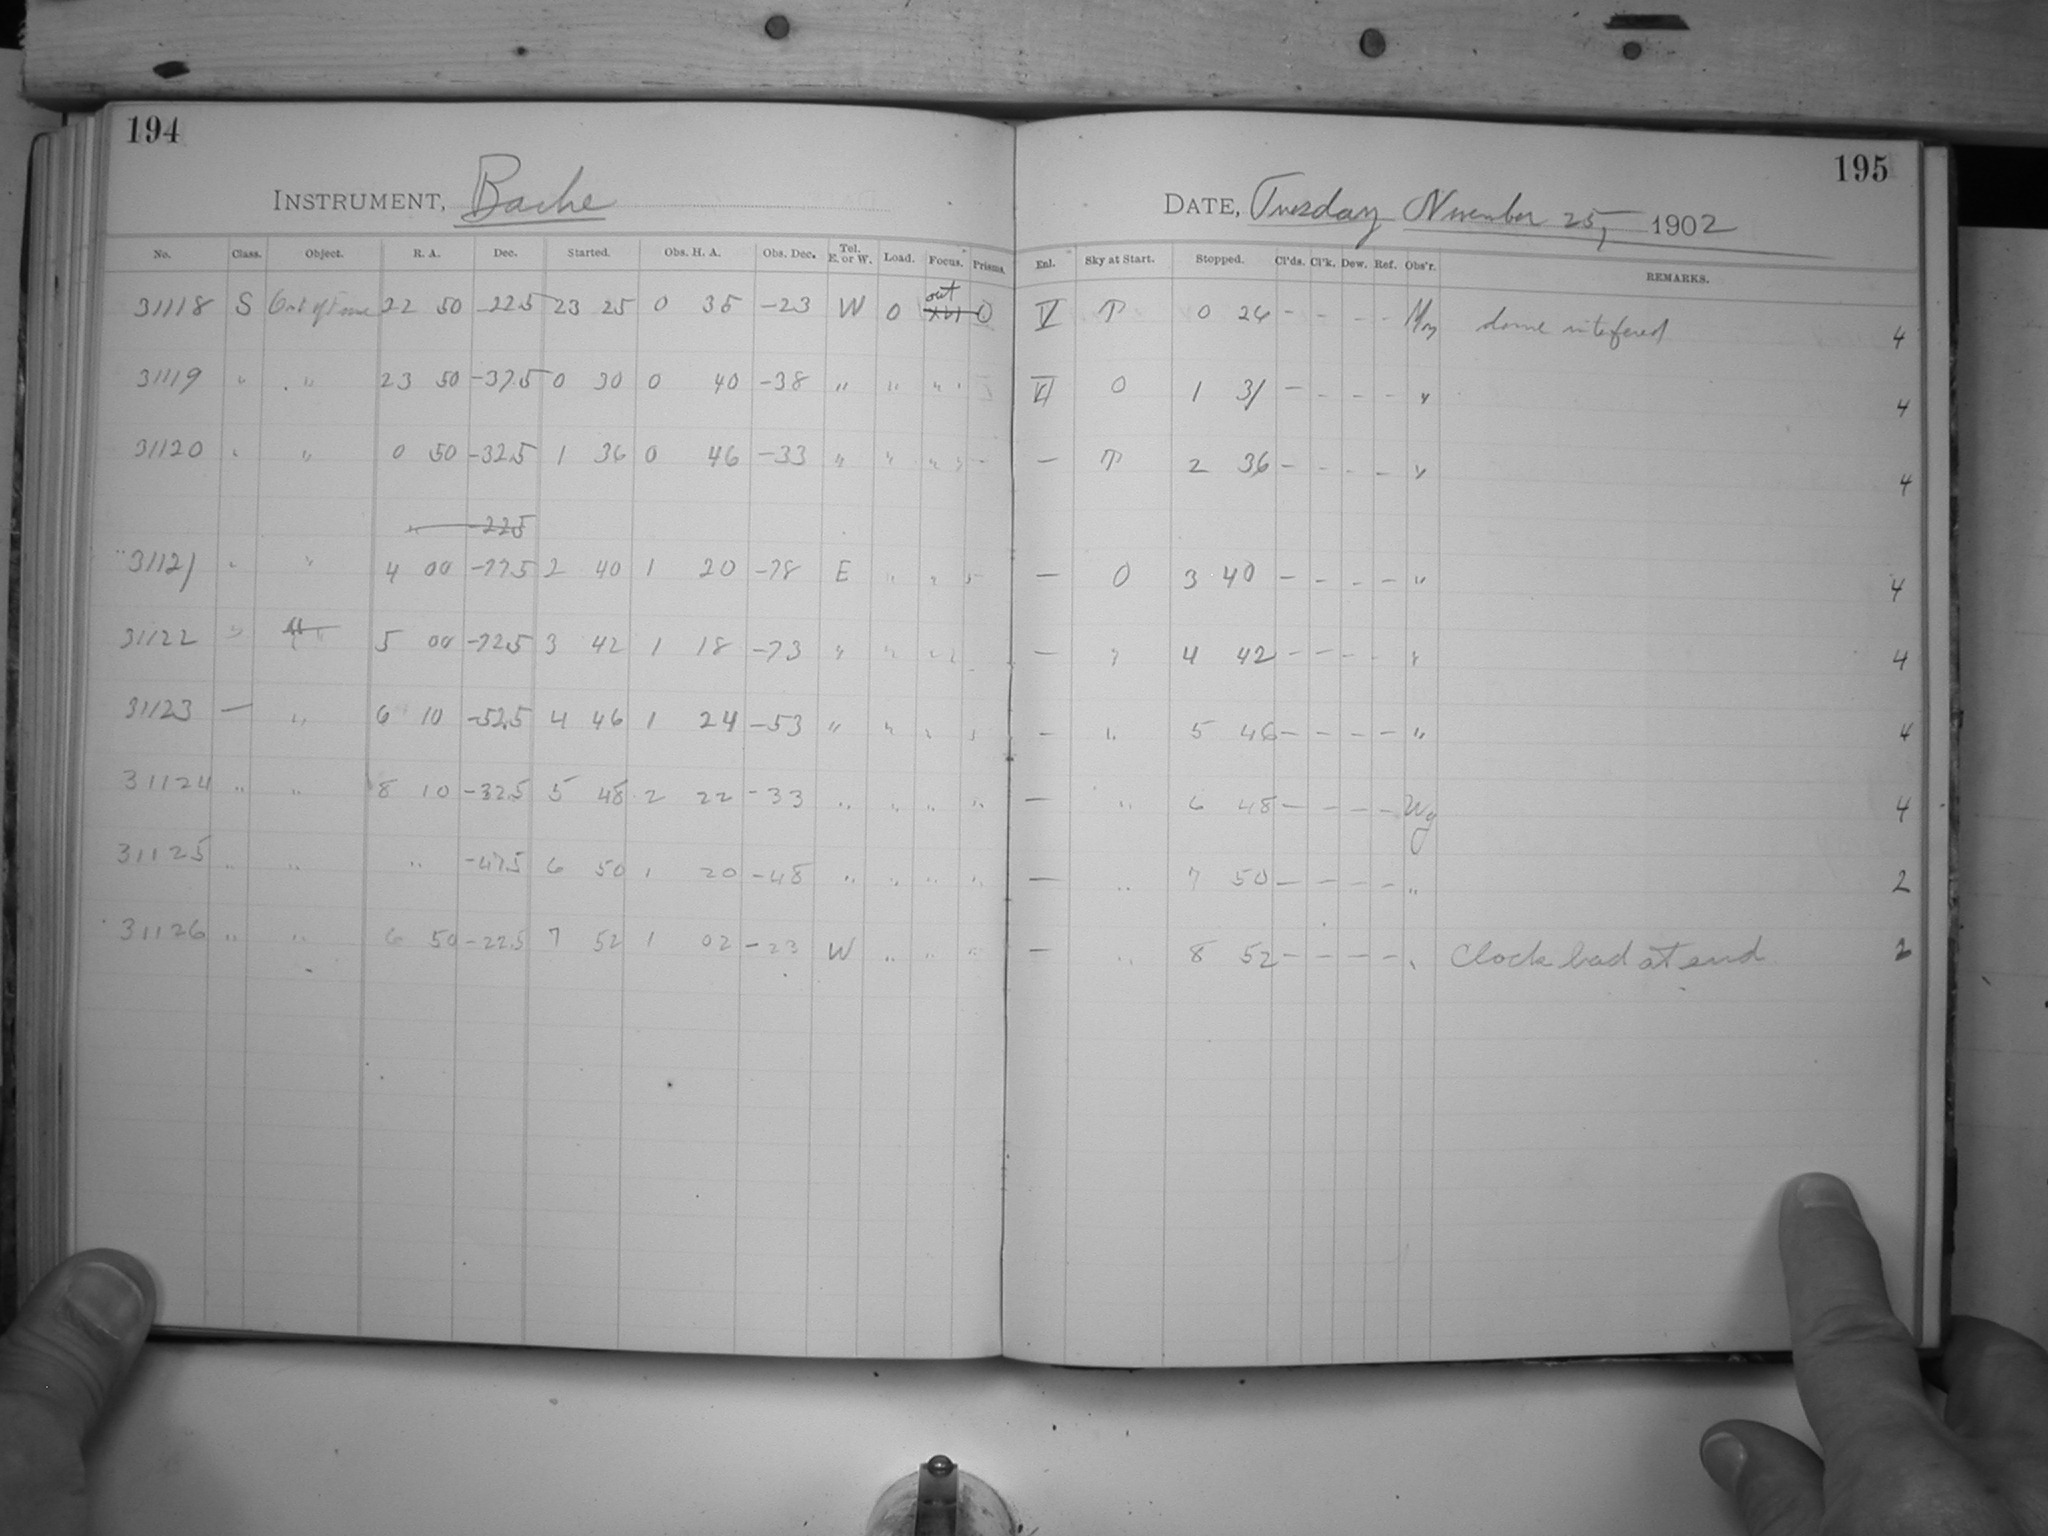 194
INSTRUMENT, Bache
No. Class. Object. R. A. Dec. Started. Obs. H. A. Obs. Dec. Tel. E. or W. Load. Focus. Prisms.
31118 S Out of Focus 22 50 -22.5 23 25 0 35 -23 W 0 out 0
31119 " " 23 50 -37.5 0 30 0 40 -38 " " " "
31120 " " 0 50 -32.5 1 36 0 46 -33 " " " "
" -22.5
31121 " " 4 00 -77.5 2 40 1 20 -78 E " " "
31122 " " 5 00 -72.5 3 42 1 18 -73 " " " "
31123 — " 6 10 -52.5 4 46 1 24 -53 " " " "
31124 " " 8 10 -32.5 5 48 2 22 -33 " " " "
31125 " " " -47.5 6 50 1 20 -48 " " " "
31126 " " 6 50 -22.5 7 52 1 02 -23 W " " "
195
DATE, Tuesday November 25, 1902
Enl. Sky at Start. Stopped. Cl'ds. Cl'k. Dew. Ref. Obs'r. REMARKS.
V ↑ 0 26 - - - - dome interfered 4
VI 0 1 31 - - - - " 4
— ↑ 2 36 - - - - " 4
— 0 3 40 - - - - " 4
— " 4 42 - - - - " 4
— " 5 46 - - - - " 4
— " 6 48 - - - - Wg 4
— " 7 50 - - - - " 2
— " 8 52 - - - - " Clock bad at end 2